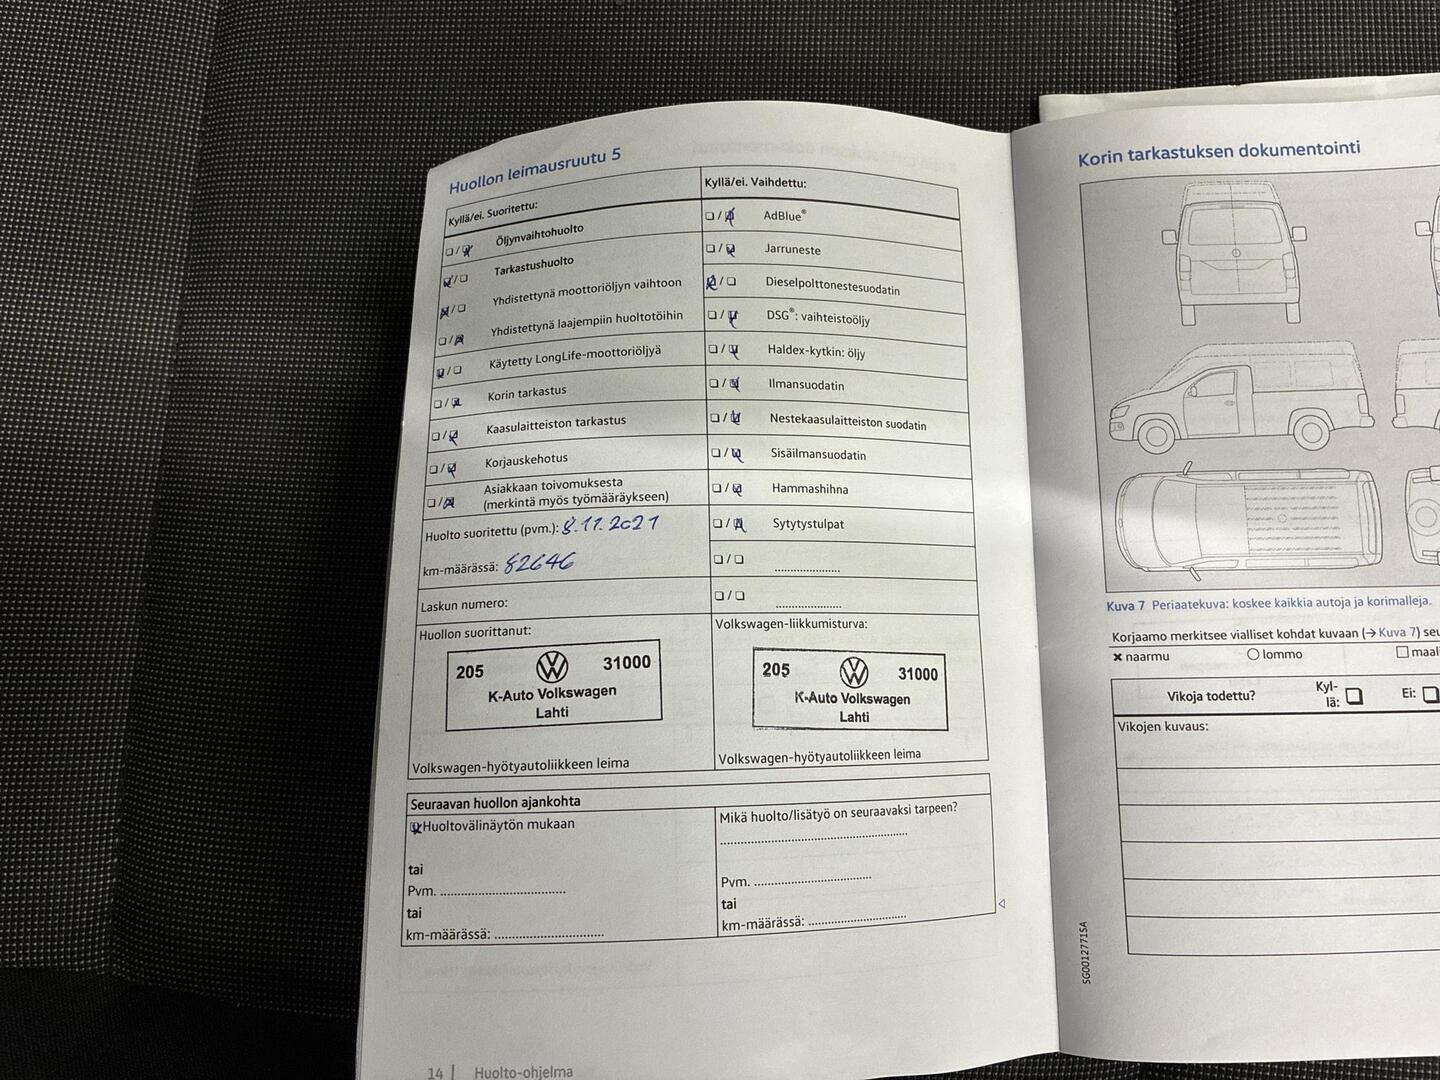 Huollon leimausruutu 5
Kyllä/ei. Suoritettu:
☐/☒ Öljynvaihtohuolto
☒/☐ Tarkastushuolto
☒/☐ Yhdistettynä moottoriöljyn vaihtoon
☐/☒ Yhdistettynä laajempiin huoltotöihin
☒/☐ Käytetty LongLife-moottoriöljyä
☐/☒ Korin tarkastus
☐/☒ Kaasulaitteiston tarkastus
☐/☒ Korjauskehotus
☐/☒ Asiakkaan toivomuksesta
(merkintä myös työmääräykseen)
Huolto suoritettu (pvm.): 8.11.2021
km-määrässä: 82646
Laskun numero:
Huollon suorittanut:
205 31000
K-Auto Volkswagen
Lahti
Volkswagen-hyötyautoliikkeen leima
Kyllä/ei. Vaihdettu:
☐/☒ AdBlue®
☐/☒ Jarruneste
☒/☐ Dieselpolttonestesuodatin
☐/☒ DSG®: vaihteistoöljy
☐/☒ Haldex-kytkin: öljy
☐/☒ Ilmansuodatin
☐/☒ Nestekaasulaitteiston suodatin
☐/☒ Sisäilmansuodatin
☐/☒ Hammashihna
☐/☒ Sytytystulpat
☐/☐ ......................
☐/☐ ......................
Volkswagen-liikkumisturva:
205 31000
K-Auto Volkswagen
Lahti
Volkswagen-hyötyautoliikkeen leima
Seuraavan huollon ajankohta
☒ Huoltovälinäytön mukaan
tai
Pvm. ..................................
tai
km-määrässä: ..............................
Mikä huolto/lisätyö on seuraavaksi tarpeen?
..................................................
Pvm. ................................
tai
km-määrässä: ...........................
14 | Huolto-ohjelma
Korin tarkastuksen dokumentointi
Kuva 7 Periaatekuva: koskee kaikkia autoja ja korimalleja.
Korjaamo merkitsee vialliset kohdat kuvaan (→ Kuva 7) seu
× naarmu ○ lommo ☐ maal
Vikoja todettu? Kyl-
lä: ☐ Ei: ☐
Vikojen kuvaus:
SG0012771SA